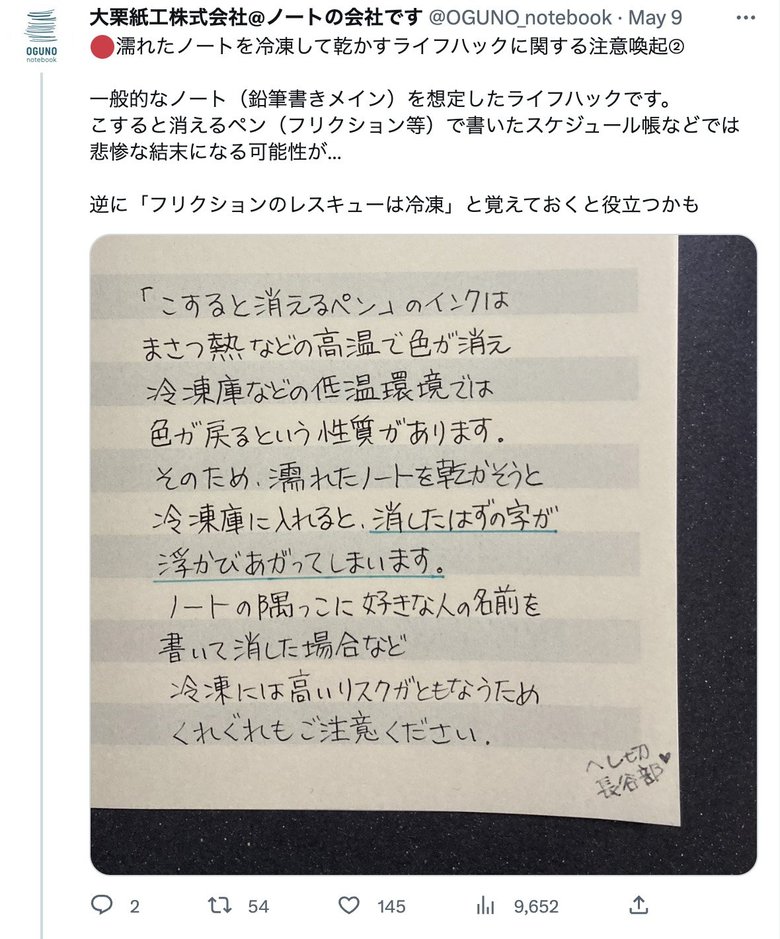 大栗紙工株式会社@ノートの会社です @OGUNO_notebook · May 9
OGUNO
notebook
🔴濡れたノートを冷凍して乾かすライフハックに関する注意喚起②
一般的なノート（鉛筆書きメイン）を想定したライフハックです。
こすると消えるペン（フリクション等）で書いたスケジュール帳などでは
悲惨な結末になる可能性が...
逆に「フリクションのレスキューは冷凍」と覚えておくと役立つかも
「こすると消えるペン」のインクは
まさつ熱などの高温で色が消え
冷凍庫などの低温環境では
色が戻るという性質があります。
そのため、濡れたノートを乾かそうと
冷凍庫に入れると、消したはずの字が
浮かびあがってしまいます。
ノートの隅っこに好きな人の名前を
書いて消した場合など
冷凍には高いリスクがともなうため
くれぐれもご注意ください.
へし切♥
長谷部
2 54 145 9,652